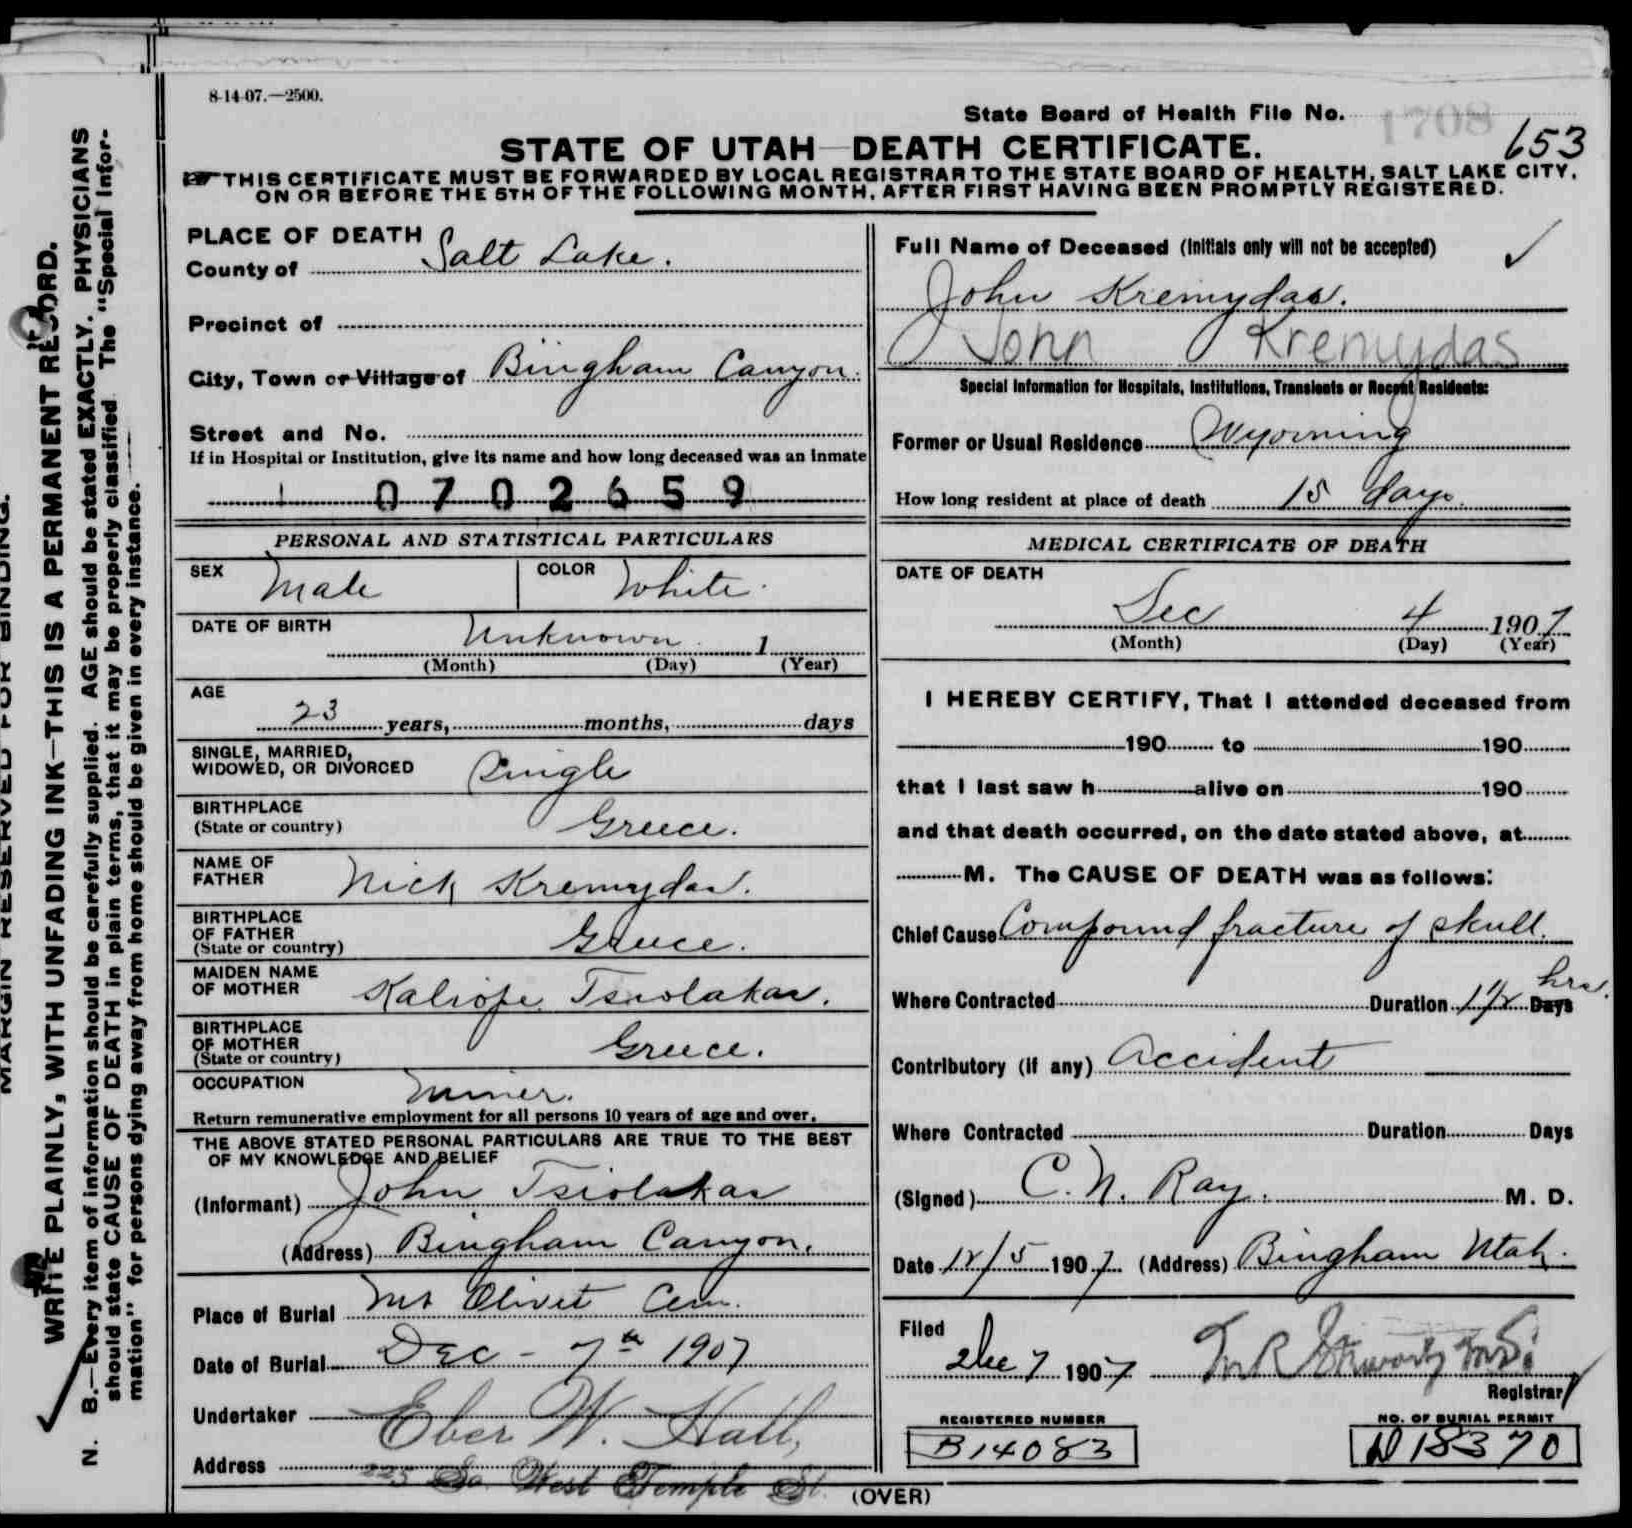 8-14-07.—2500.
State Board of Health File No. 1708
653
STATE OF UTAH—DEATH CERTIFICATE.
THIS CERTIFICATE MUST BE FORWARDED BY LOCAL REGISTRAR TO THE STATE BOARD OF HEALTH, SALT LAKE CITY,
ON OR BEFORE THE 5TH OF THE FOLLOWING MONTH, AFTER FIRST HAVING BEEN PROMPTLY REGISTERED.
MARGIN RESERVED FOR BINDING.
WRITE PLAINLY, WITH UNFADING INK—THIS IS A PERMANENT RECORD.
N. B.—Every item of information should be carefully supplied. AGE should be stated EXACTLY. PHYSICIANS
should state CAUSE OF DEATH in plain terms, that it may be properly classified. The "Special Infor-
mation" for persons dying away from home should be given in every instance.
PLACE OF DEATH
County of Salt Lake.
Precinct of
City, Town or Village of Bingham Canyon.
Street and No.
If in Hospital or Institution, give its name and how long deceased was an inmate
0702659
PERSONAL AND STATISTICAL PARTICULARS
SEX Male COLOR White.
DATE OF BIRTH Unknown 1
(Month) (Day) (Year)
AGE
23 years, months, days
SINGLE, MARRIED,
WIDOWED, OR DIVORCED Single
BIRTHPLACE
(State or country) Greece.
NAME OF
FATHER Nick Kremydas.
BIRTHPLACE
OF FATHER
(State or country) Greece.
MAIDEN NAME
OF MOTHER Kaliope Tsiolakas.
BIRTHPLACE
OF MOTHER
(State or country) Greece.
OCCUPATION Miner.
Return remunerative employment for all persons 10 years of age and over.
THE ABOVE STATED PERSONAL PARTICULARS ARE TRUE TO THE BEST
OF MY KNOWLEDGE AND BELIEF
(Informant) John Tsiolakas
(Address) Bingham Canyon.
Place of Burial Mt Olivet Cem.
Date of Burial Dec - 7th 1907
Undertaker Eber W. Hall,
Address 225 So. West Temple St.
Full Name of Deceased (Initials only will not be accepted)
John Kremydas.
John Kremydas
Special Information for Hospitals, Institutions, Transients or Recent Residents:
Former or Usual Residence Wyoming
How long resident at place of death 15 days.
MEDICAL CERTIFICATE OF DEATH
DATE OF DEATH
Dec 4 1907
(Month) (Day) (Year)
I HEREBY CERTIFY, That I attended deceased from
190 to 190
that I last saw h alive on 190
and that death occurred, on the date stated above, at
M. The CAUSE OF DEATH was as follows:
Chief Cause Compound fracture of skull.
Where Contracted Duration 1 1/2 Days hrs.
Contributory (if any) Accident
Where Contracted Duration Days
(Signed) C. N. Ray. M. D.
Date 12/5 1907. (Address) Bingham Utah.
Filed
Dec 7 1907
Registrar
REGISTERED NUMBER
B14083
NO. OF BURIAL PERMIT
D18370
(OVER)